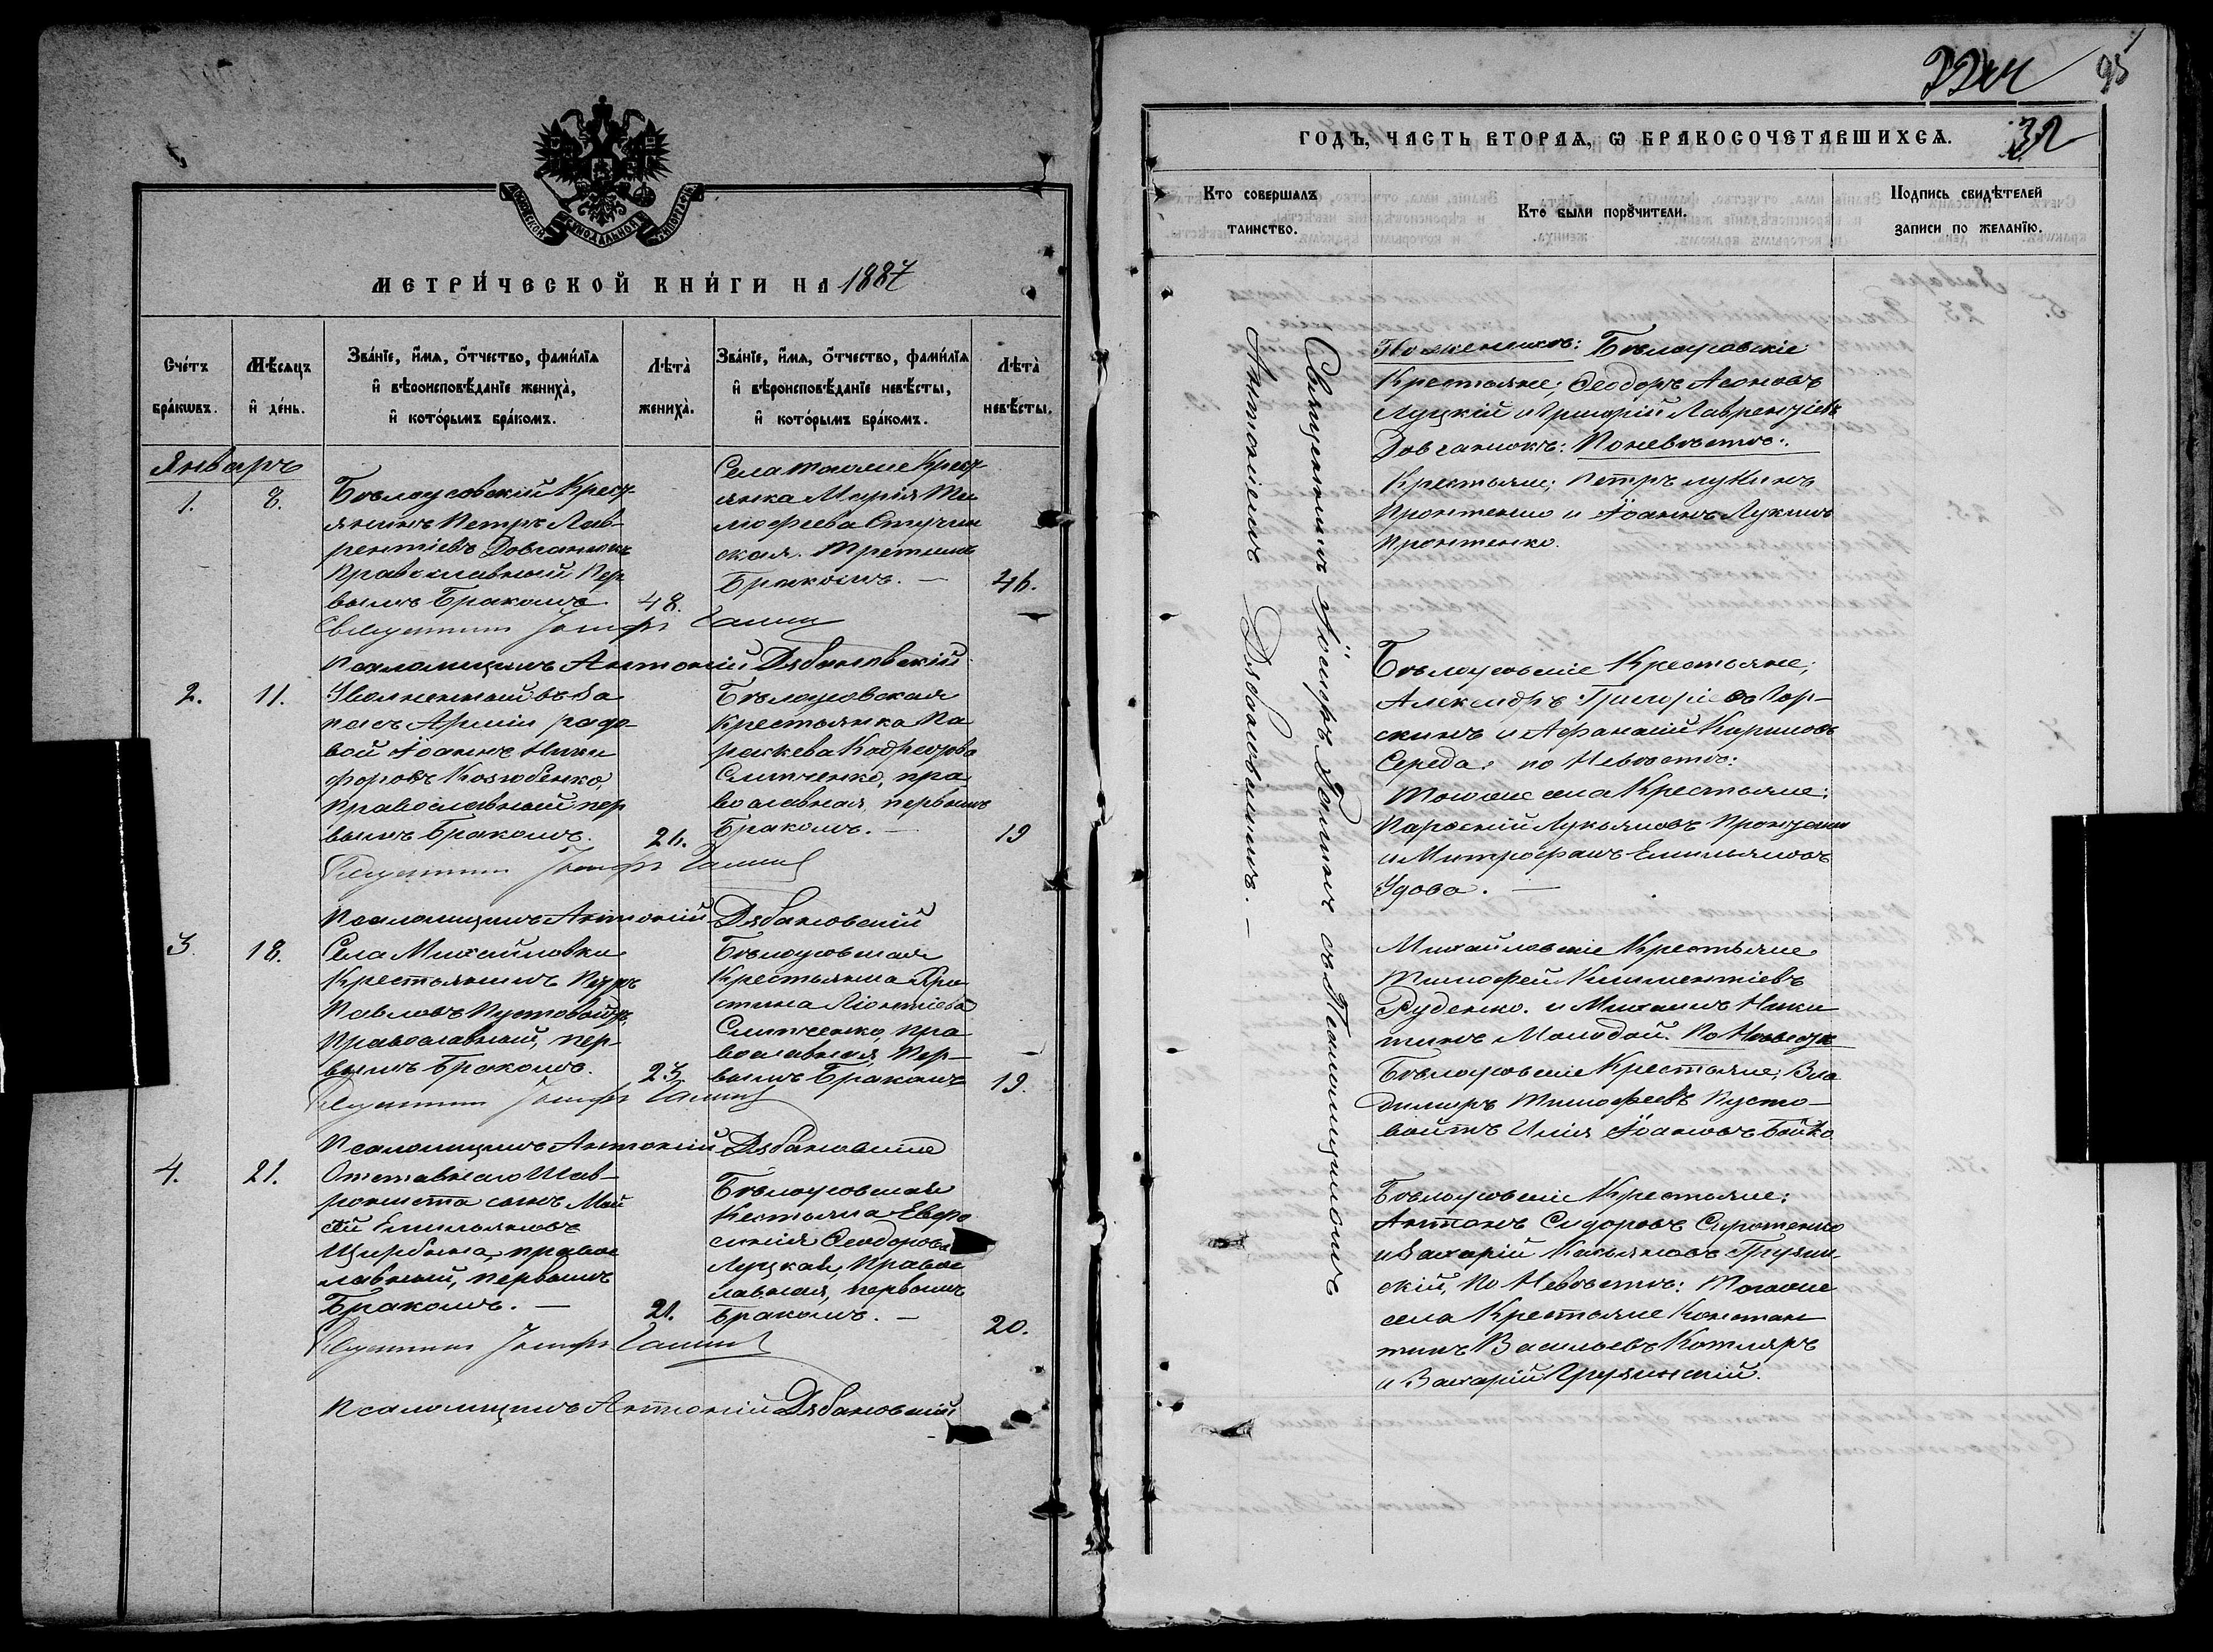 МОСКОВСКОЙ СѴНОДАЛЬНОЙ ТИПОГРАФІИ
МЕТРИ́ЧЕСКОЙ КНИ́ГИ НА 1887
Сче́тъ бра́кѡвъ.
Мѣ́сѧцъ и҆ де́нь.
Зва́нїе, и҆́мѧ, ѻ҆́тчество, фами́лїѧ
и҆ вѣроисповѣ́данїе жениха̀,
и҆ кото́рымъ бра́комъ.
Лѣта̀ жениха̀.
Зва́нїе, и҆́мѧ, ѻ҆́тчество, фами́лїѧ
и҆ вѣроисповѣ́данїе невѣ́сты,
и҆ кото́рымъ бра́комъ.
Лѣта̀ невѣ́сты.
Январь
1.
8.
Бѣлоусовскій Крест
янинъ Петръ Лав-
рентіевъ Довганюкъ
Православный Пер
вымъ Бракомъ
48.
Села тогоже Крест
янка Марія Ти
мофеева
ская. Третимъ
Бракомъ. —
46.
Священникъ Іосифъ Галин
Псаломщикъ Антоній Дябановскій
2.
11.
Уволненный въ За
пасъ Арміи рядо
вой Іоаннъ Ники
форовъ Козюбенко,
Православный пер
вымъ Бракомъ.
26.
Бѣлоусовская
Крестьянка Па
раскева Кодратова
Слипченко, пра
вославная, первымъ
Бракомъ. —
19
Священникъ Іосифъ Галин
Псаломщикъ Антоній Дябановскій
3.
18.
Села Михайловки
Крестьянинъ Петръ
Павловъ Пустовойтъ,
Православный, пер-
вымъ Бракомъ.
23
Бѣлоусовская
Крестьянка Хри
стина Ліонтіева
Слипченко, пра
вославная, Пер-
вымъ Бракомъ
19.
Священникъ Іосифъ Галин
Псаломщикъ Антоній Дябановскій
4.
21.
Отставнаго Шав-
рониста сынъ Мой
сей Емильяновъ
Щербина, правос
лавный, первымъ
Бракомъ. —
21.
Бѣлоусовская
Кестьянка Евфро
синія Феодорова
Луцкая, Правос
лавная, первымъ
Бракомъ. —
20.
Священникъ Іосифъ Галин
Псаломщикъ Антоній Дябановскій
95
32
ГОДЪ, ЧАСТЬ ВТОРАѦ, Ѡ БРАКОСОЧЕТАВШИХСѦ.
Кто совершалъ таинство.
Кто были порꙋчители.
Подпись свидѣтелей
записи по желанїю.
Священникъ Іосифъ Галинъ съ Псаломщикомъ
Антоніемъ Дябановскимъ. —
По женихѣ: Бѣлоусовскіе
Крестьяне; Феодоръ Леоновъ
Луцкій и Григорій Лаврентіевъ
Довганюкъ: По невѣстѣ:
Крестьяне; Петръ Лукинъ
Пронтенко и Іоаннъ Лукинъ
Пронтенко.
Бѣлоусовскіе Крестьяне;
Александръ Григоріевъ Пор-
скинъ и Афанасій Кириловъ
Середа: по Невѣстѣ:
Тогоже села Крестьяне:
Парфеній Лукьяновъ
и Митрофанъ Емильяновъ
Удова. —
Михайловскіе Крестьяне
Тимофей Климентіевъ
Руденко. и Михаилъ Ники
тинъ Молодой. По Невѣстѣ
Бѣлоусовскіе Крестьяне; Вла
димиръ Тимофеевъ Пусто-
войтъ Илія Іоановъ Бойко
Бѣлоусовскіе Крестьяне:
Антонъ Сидоровъ Сиротенко
и Захарій Касьяновъ Грузин-
скій, По Невѣстѣ: Тогоже
села Крестьяне Констан
тинъ Васильевъ Котляръ
и Захарій Грузинскій.